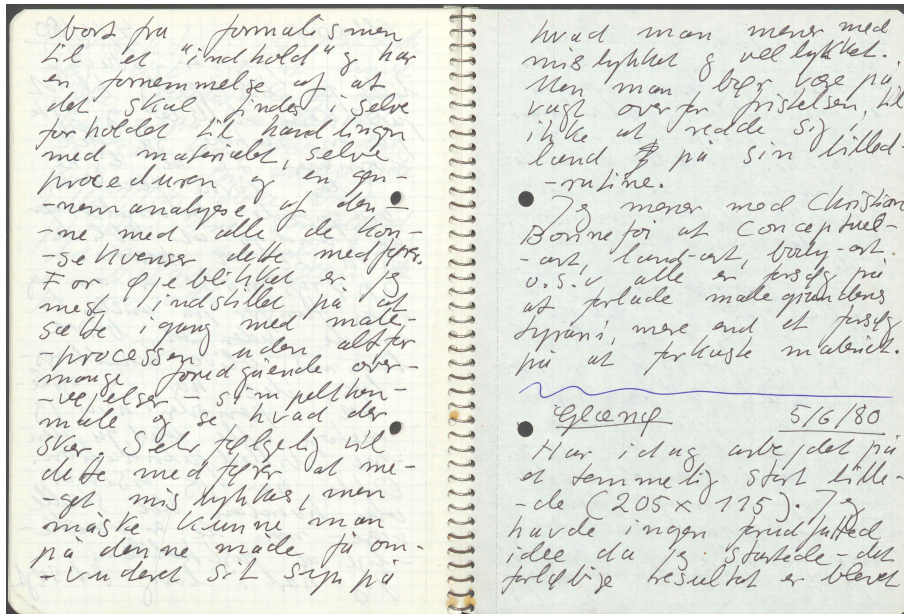 bort fra formalismen
til et "indhold" og har
en fornemmelse af at
det skal findes i selve
forholdet til handlingen
med materialet, selve
proceduren og en gen-
-nemanalyse af den-
-ne med alle de kon-
-sekvenser dette medfører.
For øjeblikket er jeg
mest indstillet på at
sætte igang med male-
-processen uden altfor
mange foregående over-
-vejelser - simpelthen
male og se hvad der
sker. Selvfølgelig vil
dette medfører at me-
-get mislykkes, men
måske kunne man
på denne måde få om-
-vurderet sit syn på
hvad man mener med
mislykket og vellykket.
Men man bør være på
vagt overfor fristelsen, til
ikke at redde sig i
land på sin billed-
-rutine.
Jeg mener med Christian
Bonnefoi at Conceptuel-
-art, land-art, body-art
o.s.v alle er forsøg på
at forlade malegrundens
tyranni, mere end et forsøg
på at forkaste maleriet.
5/6/80
Har idag arbejdet på
et temmelig stort bille-
-de (205 x 115). Jeg
havde ingen forudfattet
idee da jeg startede - det
forløbige resultat er blevet